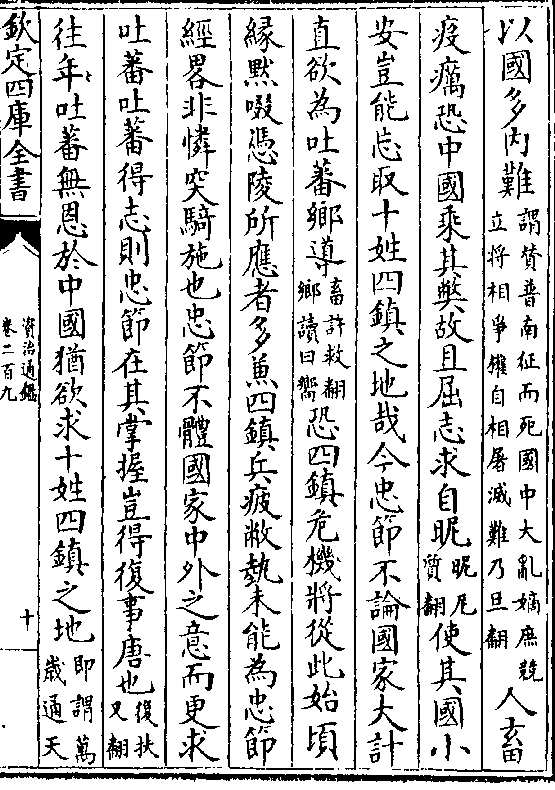 以國多内難謂贊普南征而死國中大亂嫡庶競立將相爭權自相屠滅難乃旦翻人畜
疫癘恐中國乘其弊故且屈志求自昵昵尼質翻使其國小
安豈能忘取十姓四鎮之地哉今忠節不論國家大計
直欲為吐蕃鄉導畜許救翻鄉讀曰嚮恐四鎮危機將從此始頃
縁默啜憑陵所應者多兼四鎮兵疲敝勢未能為忠節
經畧非憐突騎施也忠節不體國家中外之意而更求
吐蕃吐蕃得志則忠節在其掌握豈得復事唐也復扶又翻
往年吐蕃無恩於中國猶欲求十姓四鎮之地即謂萬歲通天
欽定四庫全書
資治通鑑
卷二百九
十